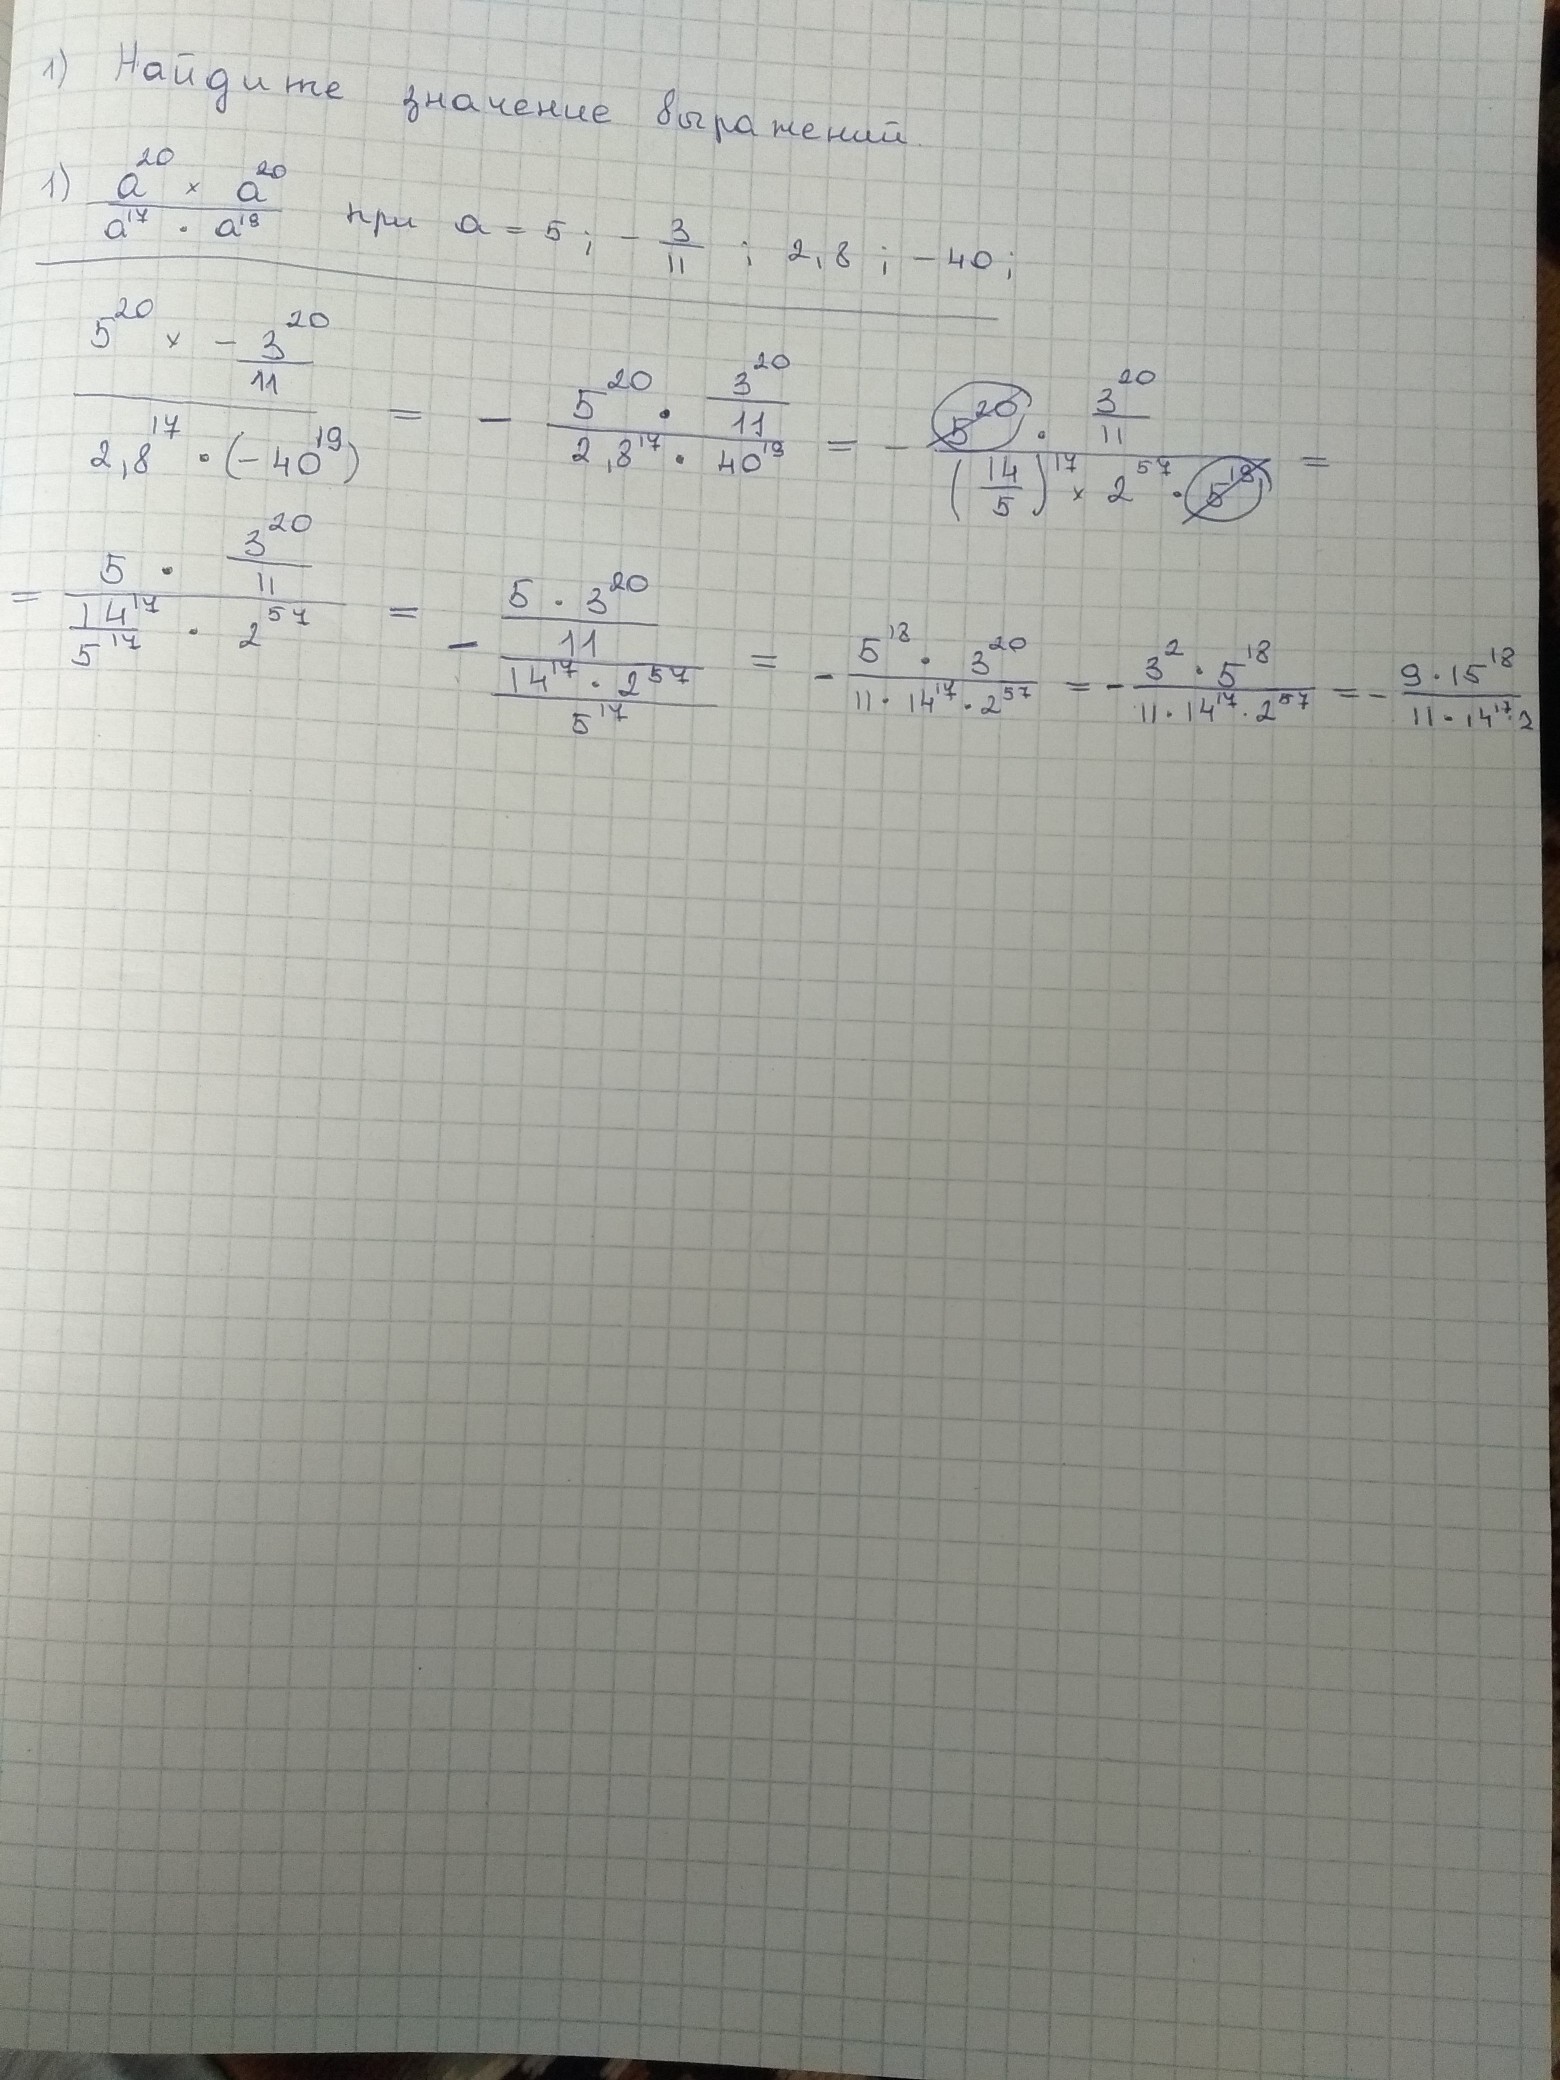 1) Найдите значение выражений.
1) a^20 × a^20 / a^17 · a^19 при a = 5 ; - 3/11 ; 2,8 ; - 40 ;
5^20 × - 3^20/11 / 2,8^17 · (- 40^19) = - 5^20 · 3^20/11 / 2,8^17 · 40^19 = - 5^20 · 3^20/11 / (14/5)^17 × 2^57 · 5^19 =
= 5 · 3^20/11 / 14^17/5^17 · 2^57 = - 5 · 3^20/11 / 14^17 · 2^57/5^17 = - 5^18 · 3^20 / 11 · 14^17 · 2^57 = - 3^2 · 5^18 / 11 · 14^17 · 2^57 = - 9 · 15^18 / 11 · 14^17 · 2